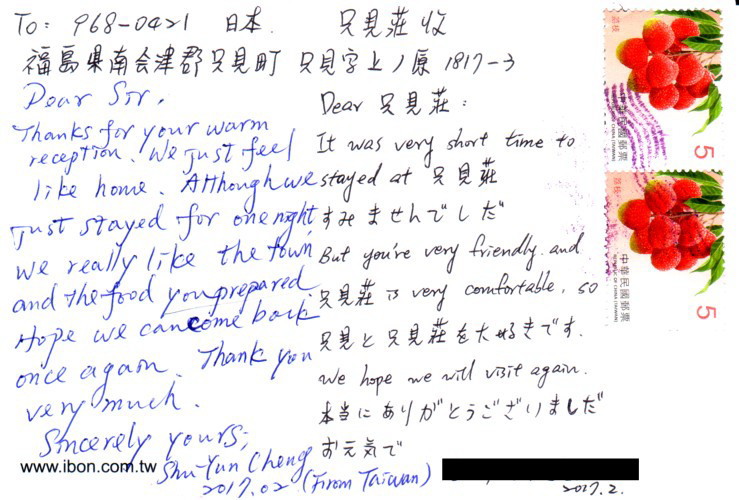 To: 968-0421 日本 只見荘 收
福島県南会津郡只見町 只見字上ノ原 1817-3
Dear Sir,
Thanks for your warm
reception. We just feel
like home. Although we
just stayed for one night,
we really like the town
and the food you prepared.
Hope we can come back
once again. Thank you
very much.
Sincerely yours,
Shu-Yun Cheng
2017.02 (From Taiwan)
Dear 只見荘:
It was very short time to
stayed at 只見荘
すみませんでしだ
But you're very friendly. and
只見荘 is very comfortable, so
只見と只見荘を大好きです.
We hope we will visit again.
本当にありがとうございましだ
お元気で
2017.2.
www.ibon.com.tw
荔枝
中華民國郵票
REPUBLIC OF CHINA (TAIWAN)
5
荔枝
中華民國郵票
REPUBLIC OF CHINA (TAIWAN)
5